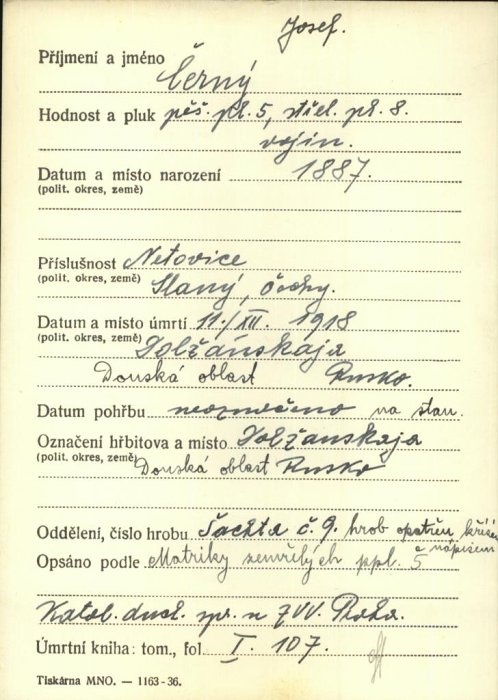 Josef.
Příjmení a jméno Černý
Hodnost a pluk pěš. pl. 5, střel. pl. 8.
vojín.
Datum a místo narození 1887.
(polit. okres, země)
Příslušnost Netovice
(polit. okres, země) Slaný, Čechy.
Datum a místo úmrtí 11./XII. 1918
(polit. okres, země) Dolžánskaja
Donská oblast Rusko.
Datum pohřbu neoznačeno na stan.
Označení hřbitova a místo Dolžanskaja
(polit. okres, země) Donská oblast Rusko
Oddělení, číslo hrobu Šachta č. 9. hrob opatřen křížem
a nápisem
Opsáno podle Matriky zemřelých ppl. 5
Katol. duch. spr. u ZVV. Praha.
Úmrtní kniha: tom., fol I. 107.
Tiskárna MNO. — 1163-36.